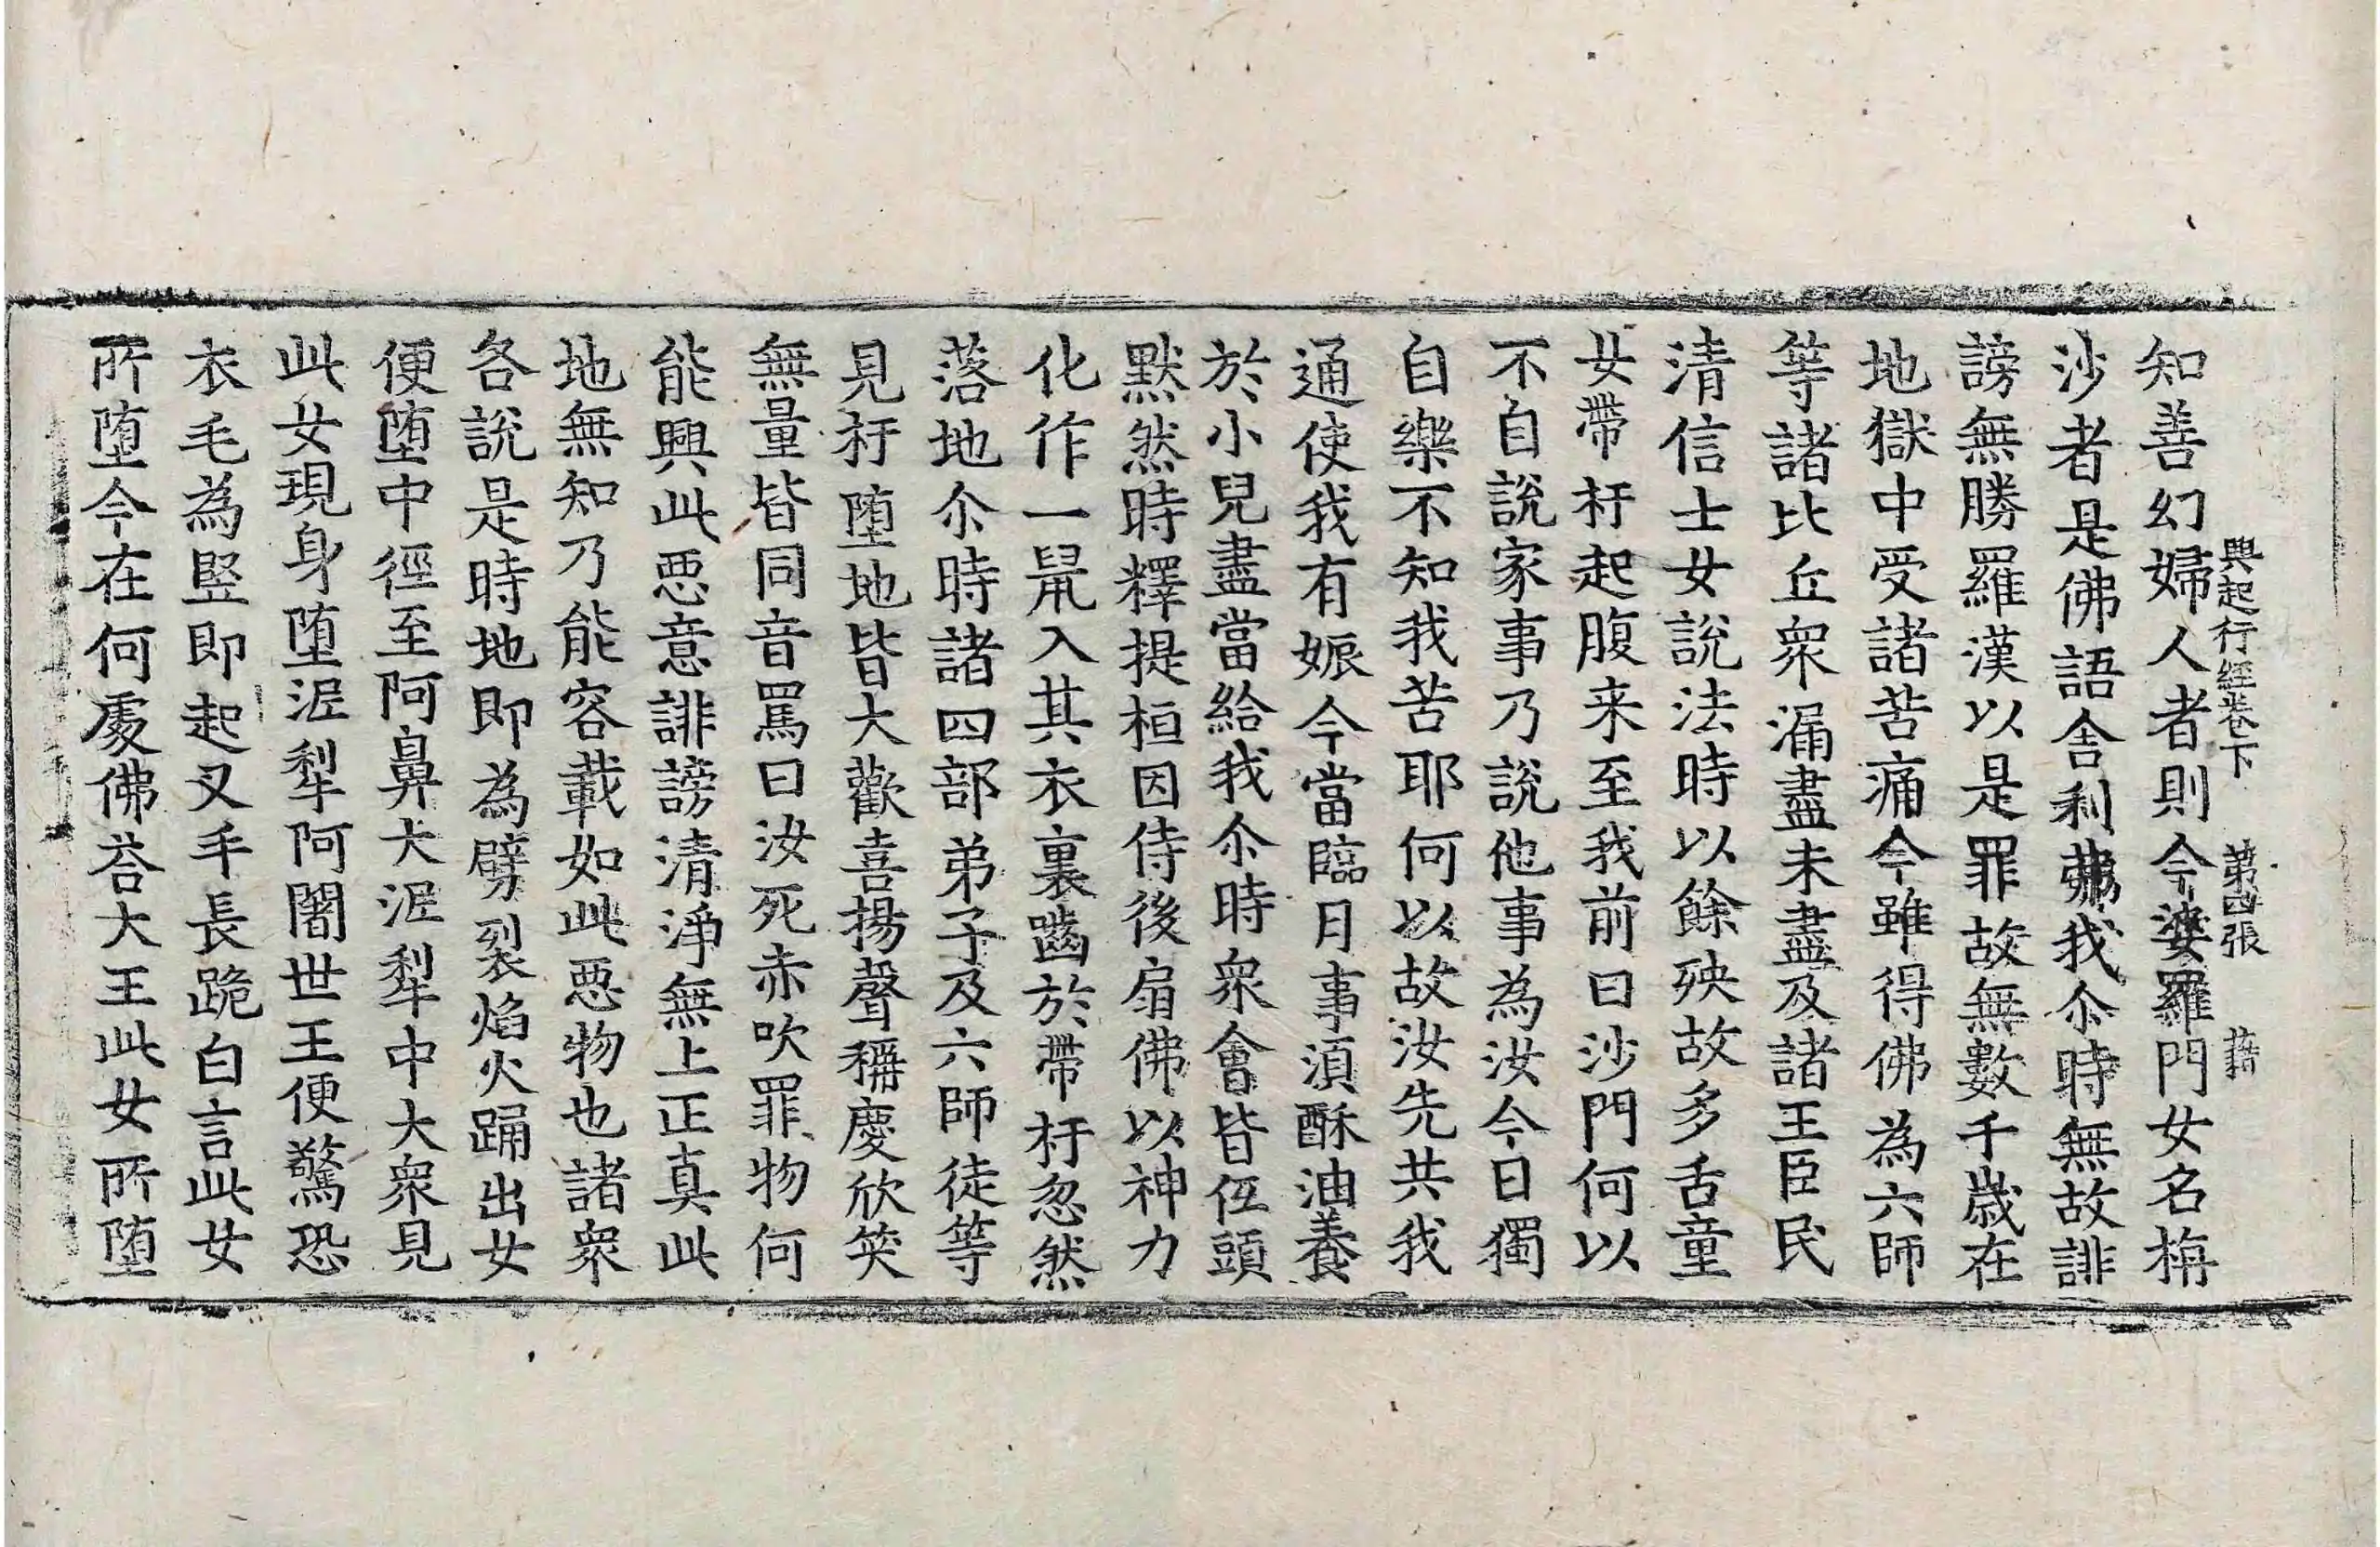 興起行經卷下 第四張 藉
知善幻婦人者則今婆羅門女名栴
沙者是佛語舍利弗我尒時無故誹
謗無勝羅漢以是罪故無數千歳在
地獄中受諸苦痛今雖得佛為六師
等諸比丘衆漏盡未盡及諸王臣民
清信士女說法時以餘殃故多舌童
女帶杅起腹来至我前曰沙門何以
不自說家事乃說他事為汝今日獨
自樂不知我苦耶何以故汝先共我
通使我有娠今當臨月事湏酥油養
於小兒盡當給我尒時衆會皆伍頭
默然時釋提桓因侍後扇佛以神力
化作一鼠入其衣裏嚙於帶杅忽然
落地尒時諸四部弟子及六師徒等
見杅墮地皆大歡喜揚聲稱慶欣笑
無量皆同音罵曰汝死赤吹罪物何
能興此惡意誹謗清淨無上正真此
地無知乃能容載如此惡物也諸衆
各說是時地即為劈裂焰火踊出女
便墮中徑至阿鼻大泥犁中大衆見
此女現身墮泥犁阿闍世王便驚恐
衣毛為竪即起叉手長跪白言此女
所墮今在何處佛荅大王此女所墮